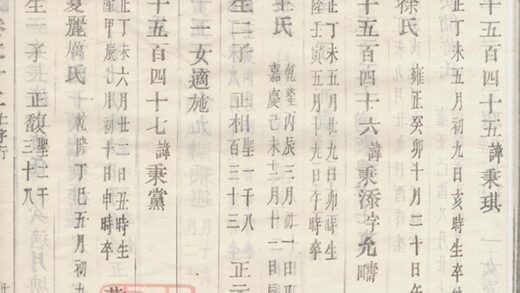 千五百四十五諱秉琪
正丁未五月初九日亥時生卒
徐氏 雍正癸卯十月二十日午
千五百四十六諱秉添字允疇
正丁未五月廿九日卯時生
隆壬寅五月十九日午時卒
氏 乾隆丙辰三月初一日
嘉慶己未十二月十一日
生二子 正相聖一千八百三十三 正元
女適施
千五百四十七諱秉黨
正丁未六月廿二日丑時生
隆甲辰七月初十日申時卒
厲氏 乾隆丁巳五月初九
生一子 正馥聖二千三十八